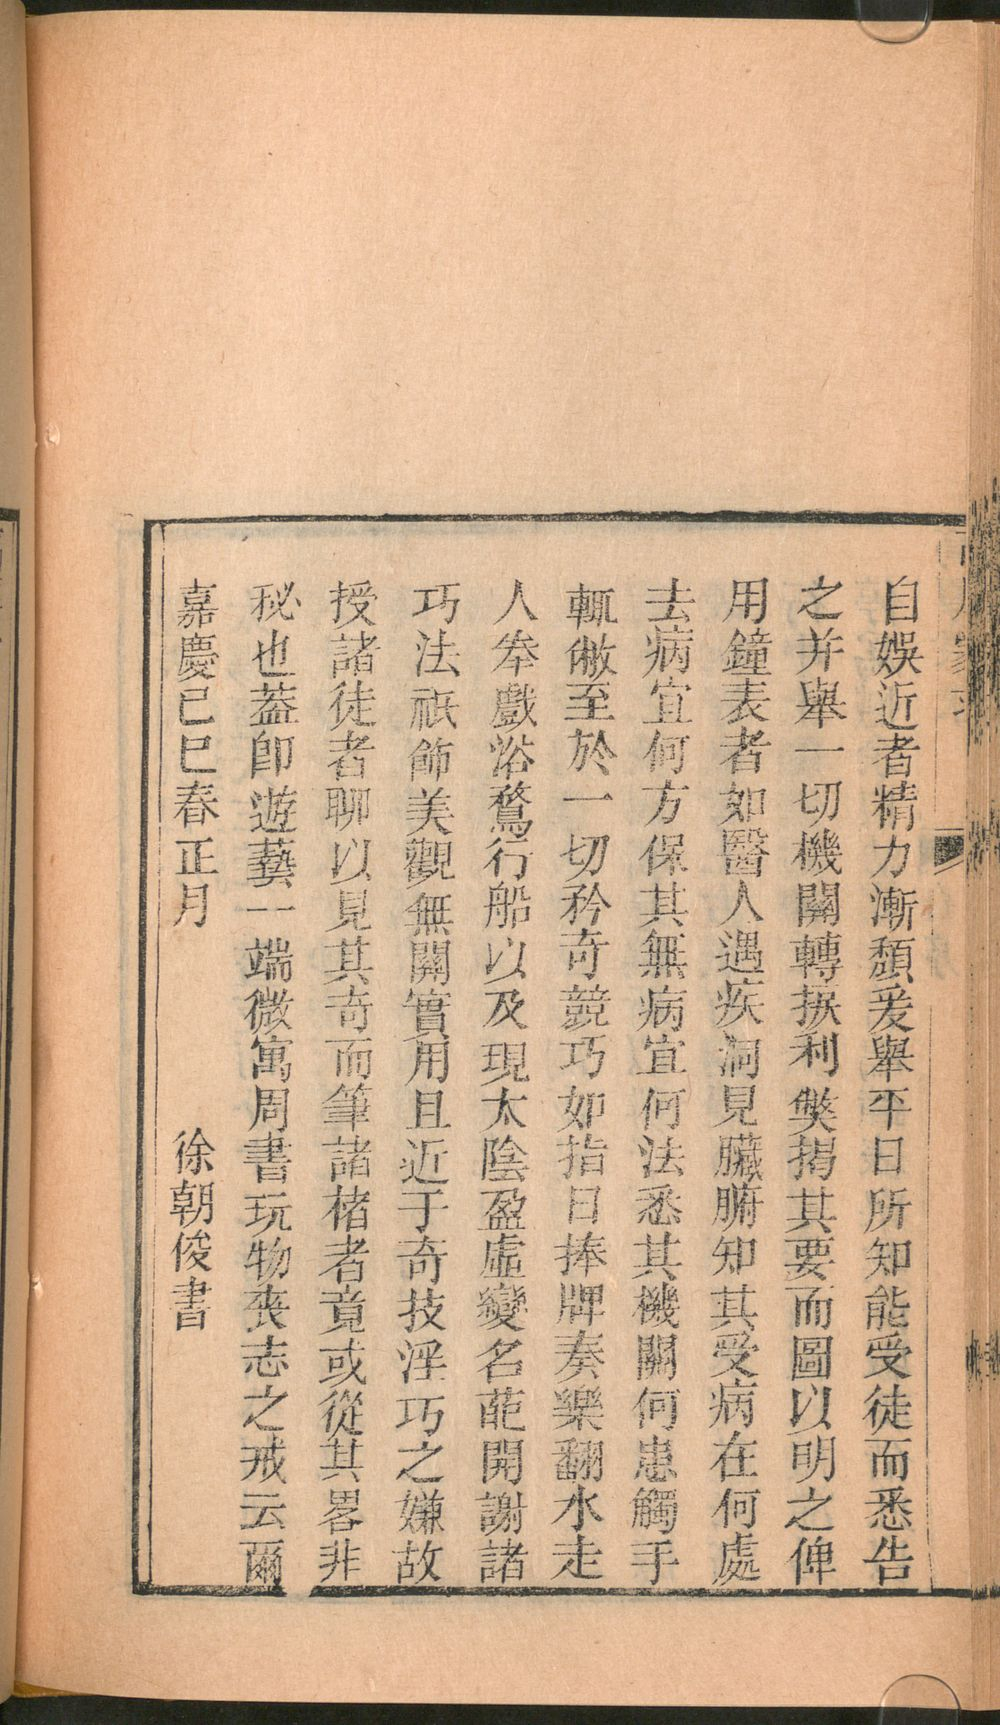 自娛近者精力漸頹爰舉平日所知能受徒而悉告
之并舉一切機關轉捩利獘揭其要而圖以明之俾
用鐘表者如醫人遇疾洞見臟腑知其受病在何處
去病宜何方保其無病宜何法悉其機關何患觸手
輒敝至於一切矜奇競巧如指日捧牌奏樂翻水走
人拳戲浴鵞行船以及現太陰盈虛變名葩開謝諸
巧法祇飾美觀無關實用且近于奇技淫巧之嫌故
授諸徒者聊以見其奇而筆諸楮者竟或從其畧非
秘也葢卽遊藝一端微寓周書玩物喪志之戒云爾
嘉慶己巳春正月
徐朝俊書